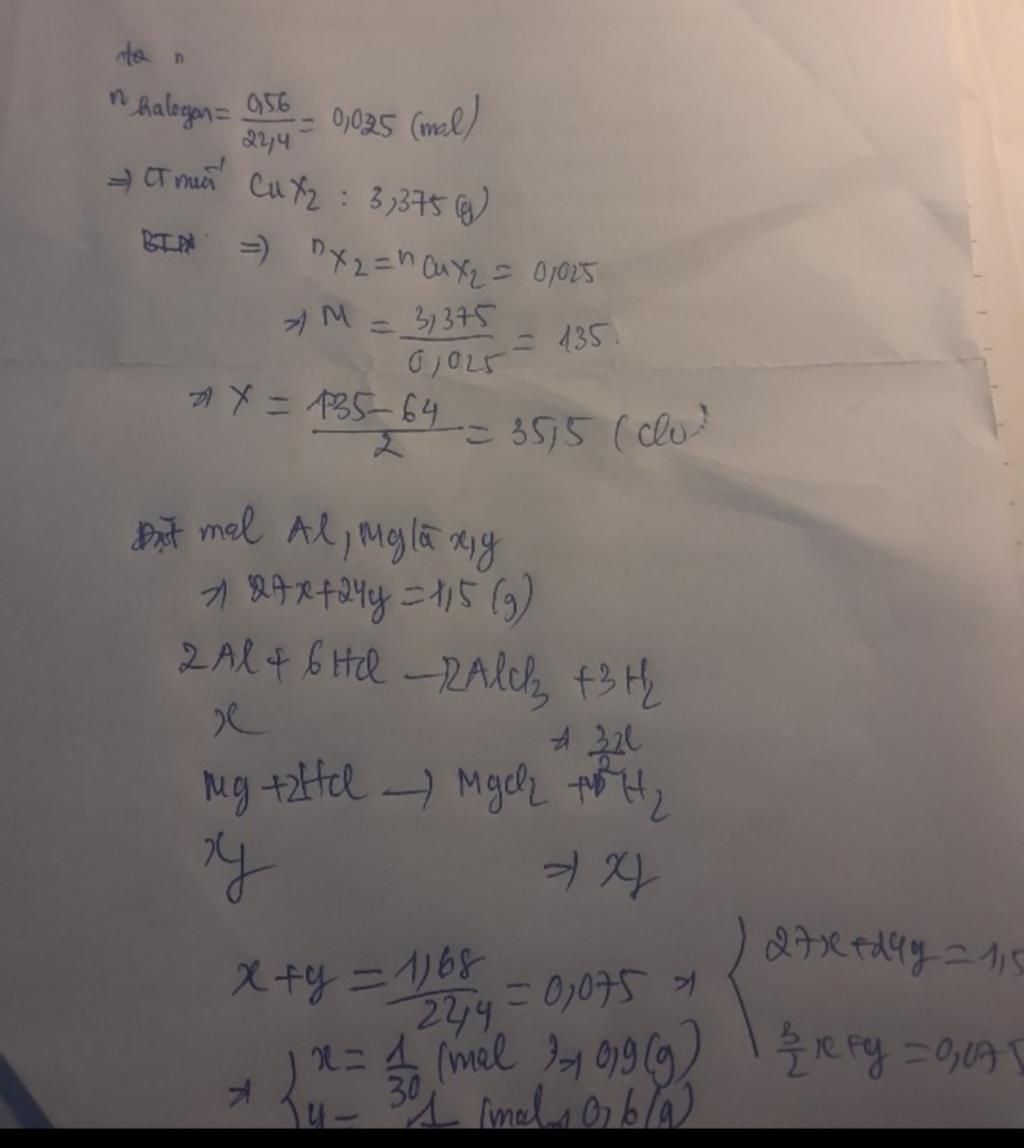 n halogen = 0,56/22,4 = 0,025 (mol)
=> CT muối CuX2 : 3,375 (g)
=> nX2 = nCuX2 = 0,025
=> M = 3,375/0,025 = 135
=> X = 135-64/2 = 35,5 (clo)
Đặt mol Al, Mg là x, y
=> 27x + 24y = 1,5 (g)
2Al + 6HCl → 2AlCl3 + 3H2
x => 3x/2
Mg + 2HCl → MgCl2 + H2
y => y
x + y = 1,68/22,4 = 0,075 => { 27x + 24y = 1,5
3/2x + y = 0,075
=> { x = 1/30 (mol) => 0,9 (g)
y = 1 (mol 0,6 (g)